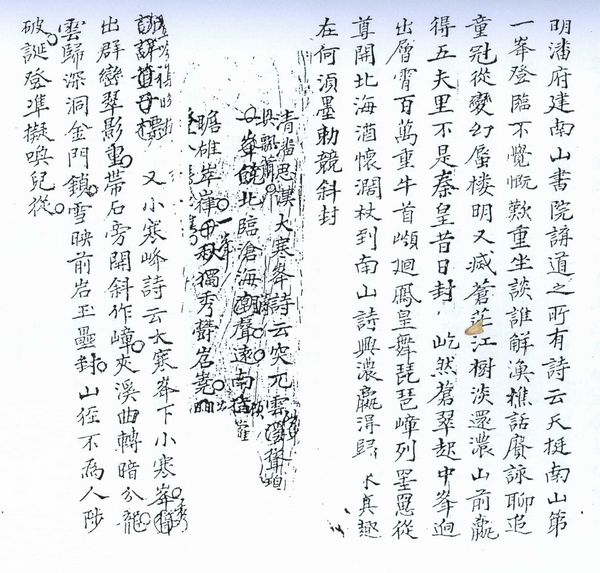 明潘府建南山書院講道之所有詩云天挺南山第
一峯登臨不覺慨歎重坐談誰解漁樵話賡詠聊追
童冠從變幻蜃樓明又滅蒼茫江樹淡還濃山前贏
得五夫里不是秦皇昔日封 屹然蒼翠起中峯迥
出層霄百萬重牛首巔迴鳳皇舞琵琶嶂列墨愿從
尊開北海酒懷濶杖到南山詩興濃贏得歸 水真趣
在何須墨勅競斜封
清 思漢大寒峯詩云突兀雲
峯 北臨滄海 聲遠南
瞻雄 獨秀
又小寒峰詩云大寒峯下小寒峯
出群巒翠影重帶石旁開斜作嶂夾溪曲轉暗分龍
雲歸深洞金門鎖雪映前岩玉壘封山徑不為人陟
破誕登准擬喚兒從